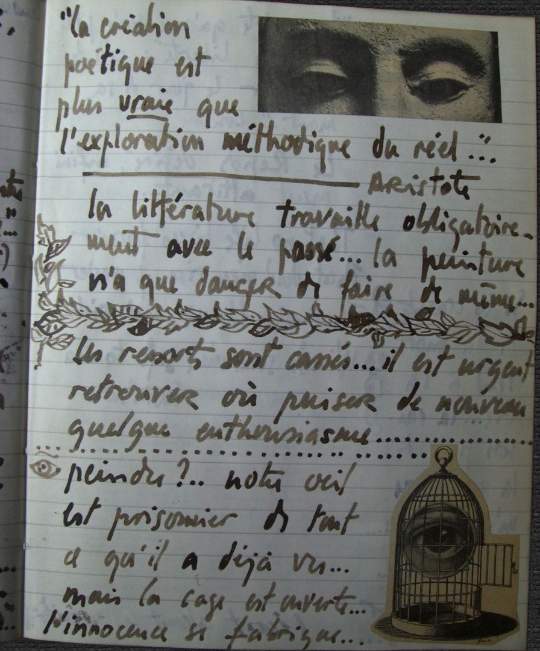 "la création
poétique est
plus vraie que
l'exploration méthodique du réel"...
ARistote
la littérature travaille obligatoire-
ment avec le passé... la peinture
n'a que danger de faire de même...
les ressorts sont cassés... il est urgent
retrouver où puiser de nouveau
quelque enthousiasme...............
peindre?.. notre oeil
est prisonnier de tout
ce qu'il a déjà vu...
mais la cage est ouverte...
l'innocence se fabrique...